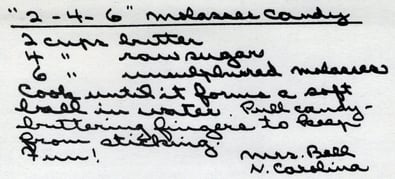 "2-4-6" molasses candy
2 cups butter
4 " raw sugar
6 " unsulphured molasses
Cook until it forms a soft
ball in water. Pull candy-
buttering fingers to keep
from sticking.
Fun!
Mrs. Bell
N. Carolina